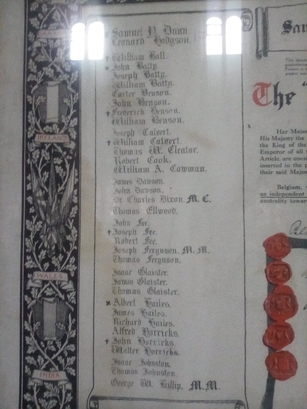 Samuel P. Dunn
Leonard Hodgson.
William Ball.
John Batty.
Joseph Batty.
William Batty.
Carter Benson.
John Benson.
Frederick Benson.
William Benson.
Joseph Calvert.
William Calvert.
Thomas W. Clentor.
Robert Cook.
William A. Cowman.
James Dawson.
John Dawson.
Dr Charles Dixon M.C.
Thomas Ellwood.
John Fee.
Joseph Fee.
Robert Fee.
Joseph Ferguson. M.M.
Thomas Ferguson.
Isaac Glaister.
James Glaister.
Thomas Glaister.
Albert Hailes.
James Hailes.
Richard Hailes.
Alfred Horricks.
John Horricks.
Walter Horricks.
Isaac Johnston.
Thomas Johnston.
George W. M.M.
IRELAND
WALES
INDIA
San
The
Her
His Majesty the
the King of the
Emperor of all
Article, are
in the
their said Maj
Belgium,
an independent
neutrality toward